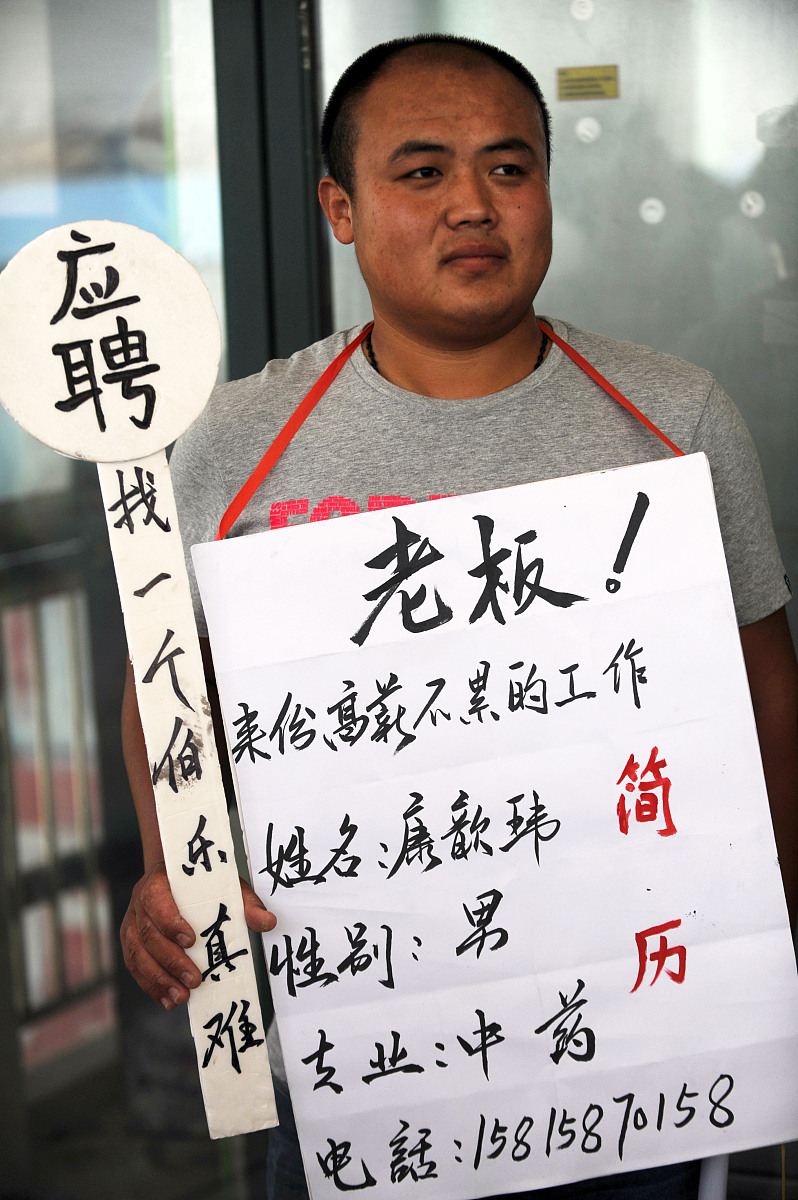 应聘
找一个伯乐真难
老板!
来份高薪不累的工作
姓名:康歆玮
性别:男
专业:中药
电話:15815870158
简历